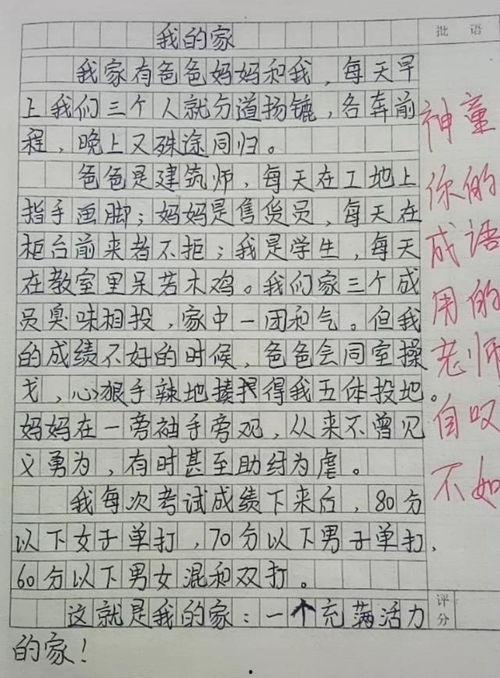 我的家
批语
我家有爸爸妈妈和我，每天早
上我们三个人就分道扬镳，各奔前
程，晚上又殊途同归。
爸爸是建筑师，每天在工地上
指手画脚；妈妈是售货员，每天在
柜台前来者不拒；我是学生，每天
在教室里呆若木鸡。我们家三个成
员臭味相投，家中一团和气。但我
的成绩不好的时候，爸爸会同室操
戈，心狠手辣地揍得我五体投地。
妈妈在一旁袖手旁观，从来不曾见
义勇为，有时甚至助纣为虐。
我每次考试成绩下来后，80分
以下女子单打，70分以下男子单打，
60分以下男女混和双打。
这就是我的家：一个充满活力
的家！
神童
你的
成语
用的
老师
自叹
不如
评分